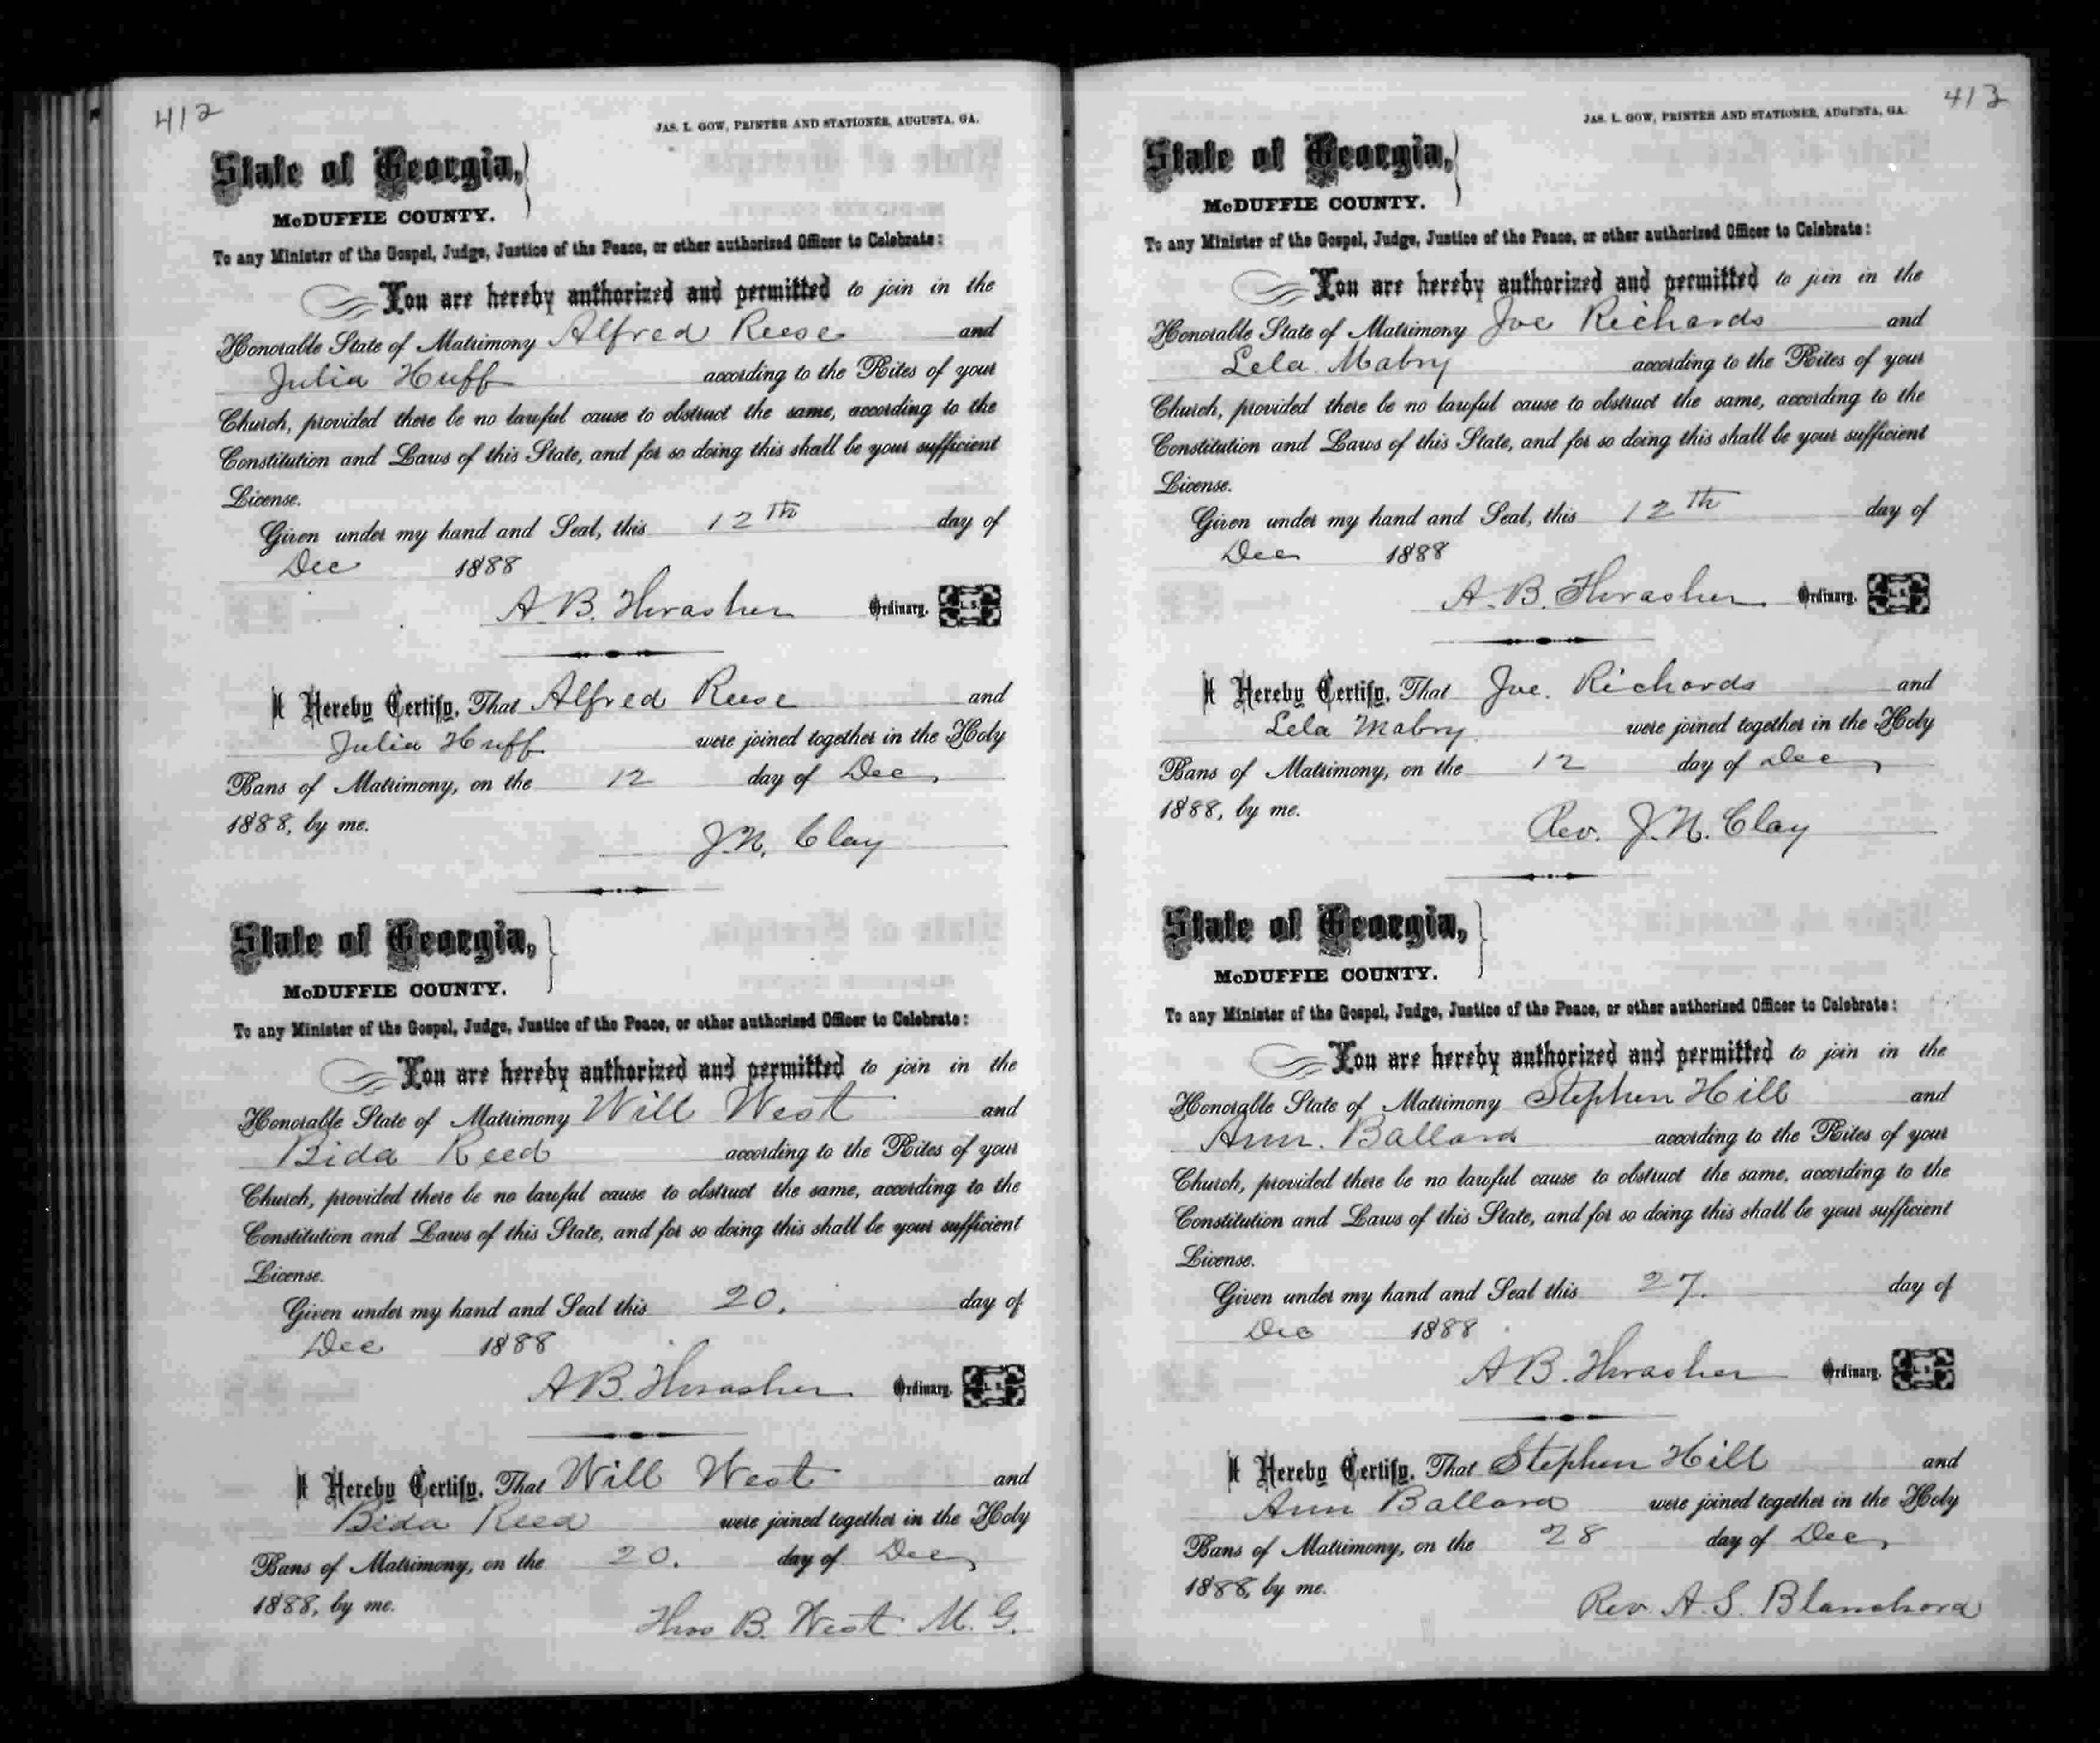 412
JAS. L. GOW, PRINTER AND STATIONER, AUGUSTA, GA.
State of Georgia,
McDUFFIE COUNTY.
To any Minister of the Gospel, Judge, Justice of the Peace, or other authorized Officer to Celebrate:
You are hereby authorized and permitted to join in the
Honorable State of Matrimony Alfred Reese and
Julia Huff according to the Rites of your
Church, provided there be no lawful cause to obstruct the same, according to the
Constitution and Laws of this State, and for so doing this shall be your sufficient
License.
Given under my hand and Seal, this 12th day of
Dec 1888
A. B. Thrasher Ordinary. L. S.
I Hereby Certify, That Alfred Reese and
Julia Huff were joined together in the Holy
Bans of Matrimony, on the 12 day of Dec
1888, by me.
J. N. Clay
State of Georgia,
McDUFFIE COUNTY.
To any Minister of the Gospel, Judge, Justice of the Peace, or other authorized Officer to Celebrate:
You are hereby authorized and permitted to join in the
Honorable State of Matrimony Will West and
Bida Reed according to the Rites of your
Church, provided there be no lawful cause to obstruct the same, according to the
Constitution and Laws of this State, and for so doing this shall be your sufficient
License.
Given under my hand and Seal this 20. day of
Dec 1888
A B. Thrasher Ordinary. L. S.
I Hereby Certify, That Will West and
Bida Reed were joined together in the Holy
Bans of Matrimony, on the 20. day of Dec
1888, by me.
Thos B. West M. G.
413
JAS. L. GOW, PRINTER AND STATIONER, AUGUSTA, GA.
State of Georgia,
McDUFFIE COUNTY.
To any Minister of the Gospel, Judge, Justice of the Peace, or other authorized Officer to Celebrate:
You are hereby authorized and permitted to join in the
Honorable State of Matrimony Joe Richards and
Lela Mabry according to the Rites of your
Church, provided there be no lawful cause to obstruct the same, according to the
Constitution and Laws of this State, and for so doing this shall be your sufficient
License.
Given under my hand and Seal, this 12th day of
Dec 1888
A. B. Thrasher Ordinary. L. S.
I Hereby Certify, That Joe. Richards and
Lela Mabry were joined together in the Holy
Bans of Matrimony, on the 12 day of Dec
1888, by me.
Rev. J. N. Clay
State of Georgia,
McDUFFIE COUNTY.
To any Minister of the Gospel, Judge, Justice of the Peace, or other authorized Officer to Celebrate:
You are hereby authorized and permitted to join in the
Honorable State of Matrimony Stephen Hill and
Ann. Ballard according to the Rites of your
Church, provided there be no lawful cause to obstruct the same, according to the
Constitution and Laws of this State, and for so doing this shall be your sufficient
License.
Given under my hand and Seal this 27. day of
Dec 1888
A B. Thrasher Ordinary. L. S.
I Hereby Certify, That Stephen Hill and
Ann Ballard were joined together in the Holy
Bans of Matrimony, on the 28 day of Dec
1888, by me.
Rev. A. S. Blanchard